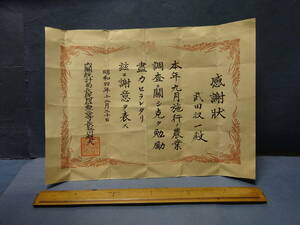 感謝狀
武田収一殿
本年九月施行ノ農業
調査ニ關シ克ク勉勵
盡力セラレタリ
茲ニ謝意ヲ表ス
昭和四年十二月二十日
內閣統計局長